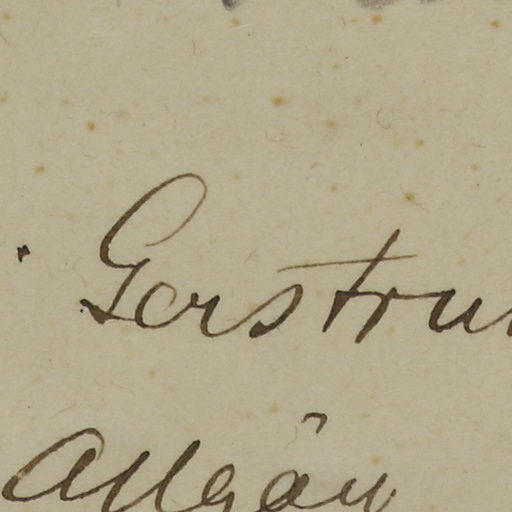 Gerstru
Allgäu